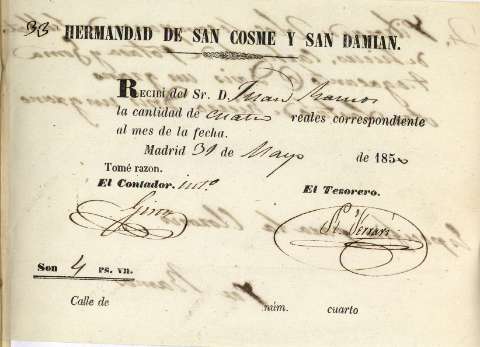 33
HERMANDAD DE SAN COSME Y SAN DAMIAN.
RECIBÍ del Sr. D. Juan Ramos
la cantidad de cuatro reales correspondiente
al mes de la fecha.
Madrid 31 de Mayo de 1850
Tomé razon.
El Contador. int.º
El Tesorero.
Son 4 rs. vn.
Calle de núm. cuarto